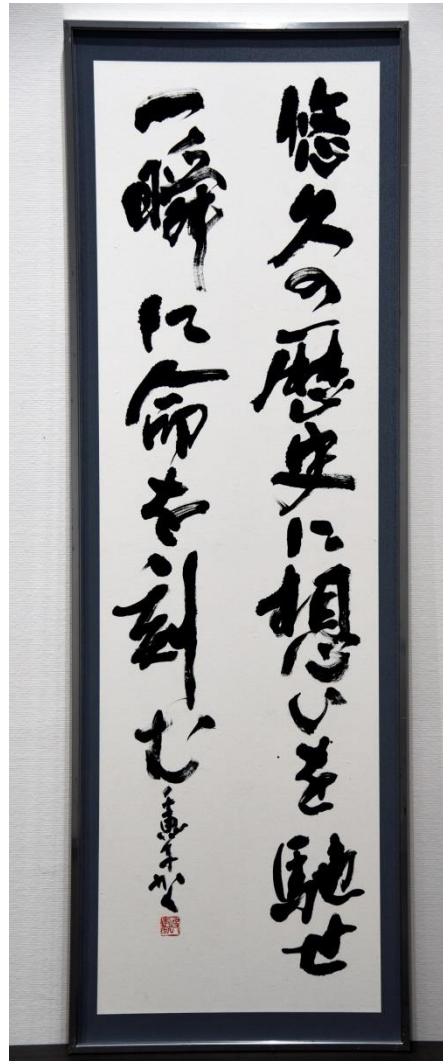 悠久の歴史に想いを馳せ
一瞬に命を刻む